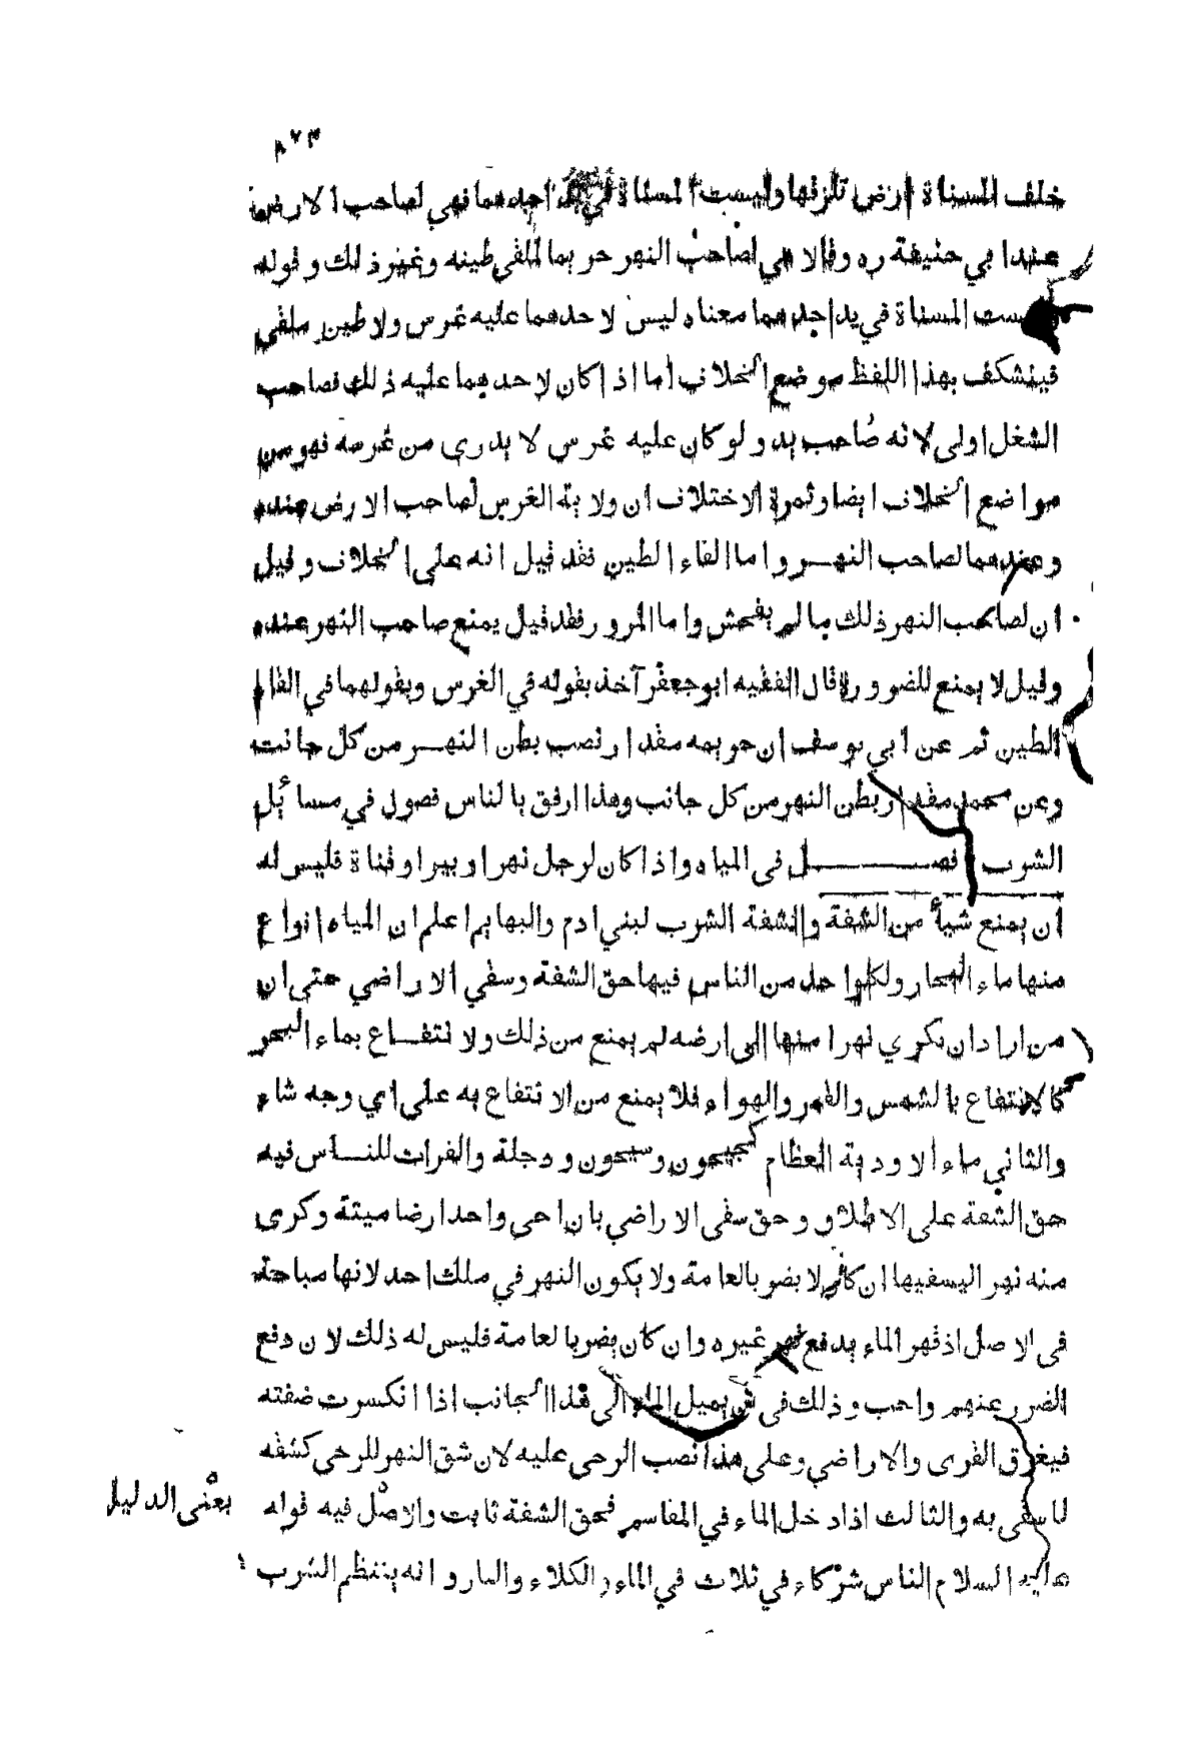 ٨٧٣
خلف المسناة ارض تلزقها وليست المسناة في يد احدهما فهي لصاحب الارض
عند ابي حنيفة ره وقالا هي لصاحب النهر حريما لملقى طينه وغير ذلك وقوله
وليست المسناة في يد احدهما معناه ليس لاحدهما عليه غرس ولا طين ملقى
فينكشف بهذا اللفظ موضع الخلاف اما اذا كان لاحدهما عليه ذلك فصاحب
الشغل اولى لانه صاحب يد ولو كان عليه غرس لا يدرى من غرسه فهو من
مواضع الخلاف ايضا وثمرة الاختلاف ان ولاية الغرس لصاحب الارض عنده
وعندهما لصاحب النهر واما القاء الطين فقد قيل انه على الخلاف وقيل
ان لصاحب النهر ذلك ما لم يفحش واما المرور فقد قيل يمنع صاحب النهر عنده
وقيل لا يمنع للضرورة قال الفقيه ابو جعفر آخذ بقوله في الغرس وبقولهما في القاء
الطين ثم عن ابي يوسف ان حريمه مقدار نصب بطن النهر من كل جانب
وعن محمد مقدار بطن النهر من كل جانب وهذا ارفق بالناس فصول في مسائل
الشرب فصل في المياه واذا كان لرجل نهر او بير او قناة فليس له
ان يمنع شيأ من الشفة والشفة الشرب لبني ادم والبهايم اعلم ان المياه انواع
منها ماء البحار ولكل واحد من الناس فيها حق الشفة وسقي الاراضي حتى ان
من اراد ان يكري نهرا منها الى ارضه لم يمنع من ذلك ولانتفاع بماء البحر
كالانتفاع بالشمس والقمر والهواء فلا يمنع من الانتفاع به على اي وجه شاء
والثاني ماء الاودية العظام كجيحون وسيحون ودجلة والفرات للناس فيه
حق الشفة على الاطلاق وحق سقى الاراضي بان احى واحد ارضا ميتة وكرى
منه نهر اليسقيها ان كان لا يضر بالعامة ولا يكون النهر في ملك احد لانها مباحة
فى الاصل اذ قهر الماء يدفع قهر غيره وان كان يضر بالعامة فليس له ذلك لان دفع
الضرر عنهم واجب وذلك فى ان يميل الماء الى هذا الجانب اذا انكسرت ضفته
فيغرق القرى والاراضي وعلى هذا نصب الرحى عليه لان شق النهر للرحى كشقه
لما سقى به والثالث اذا دخل الماء في المقاسم فحق الشفة ثابت والاصل فيه قوله
بعنى الدليل
عليه السلام الناس شركاء في ثلاث في الماء والكلاء والنار وانه ينتظم الشرب